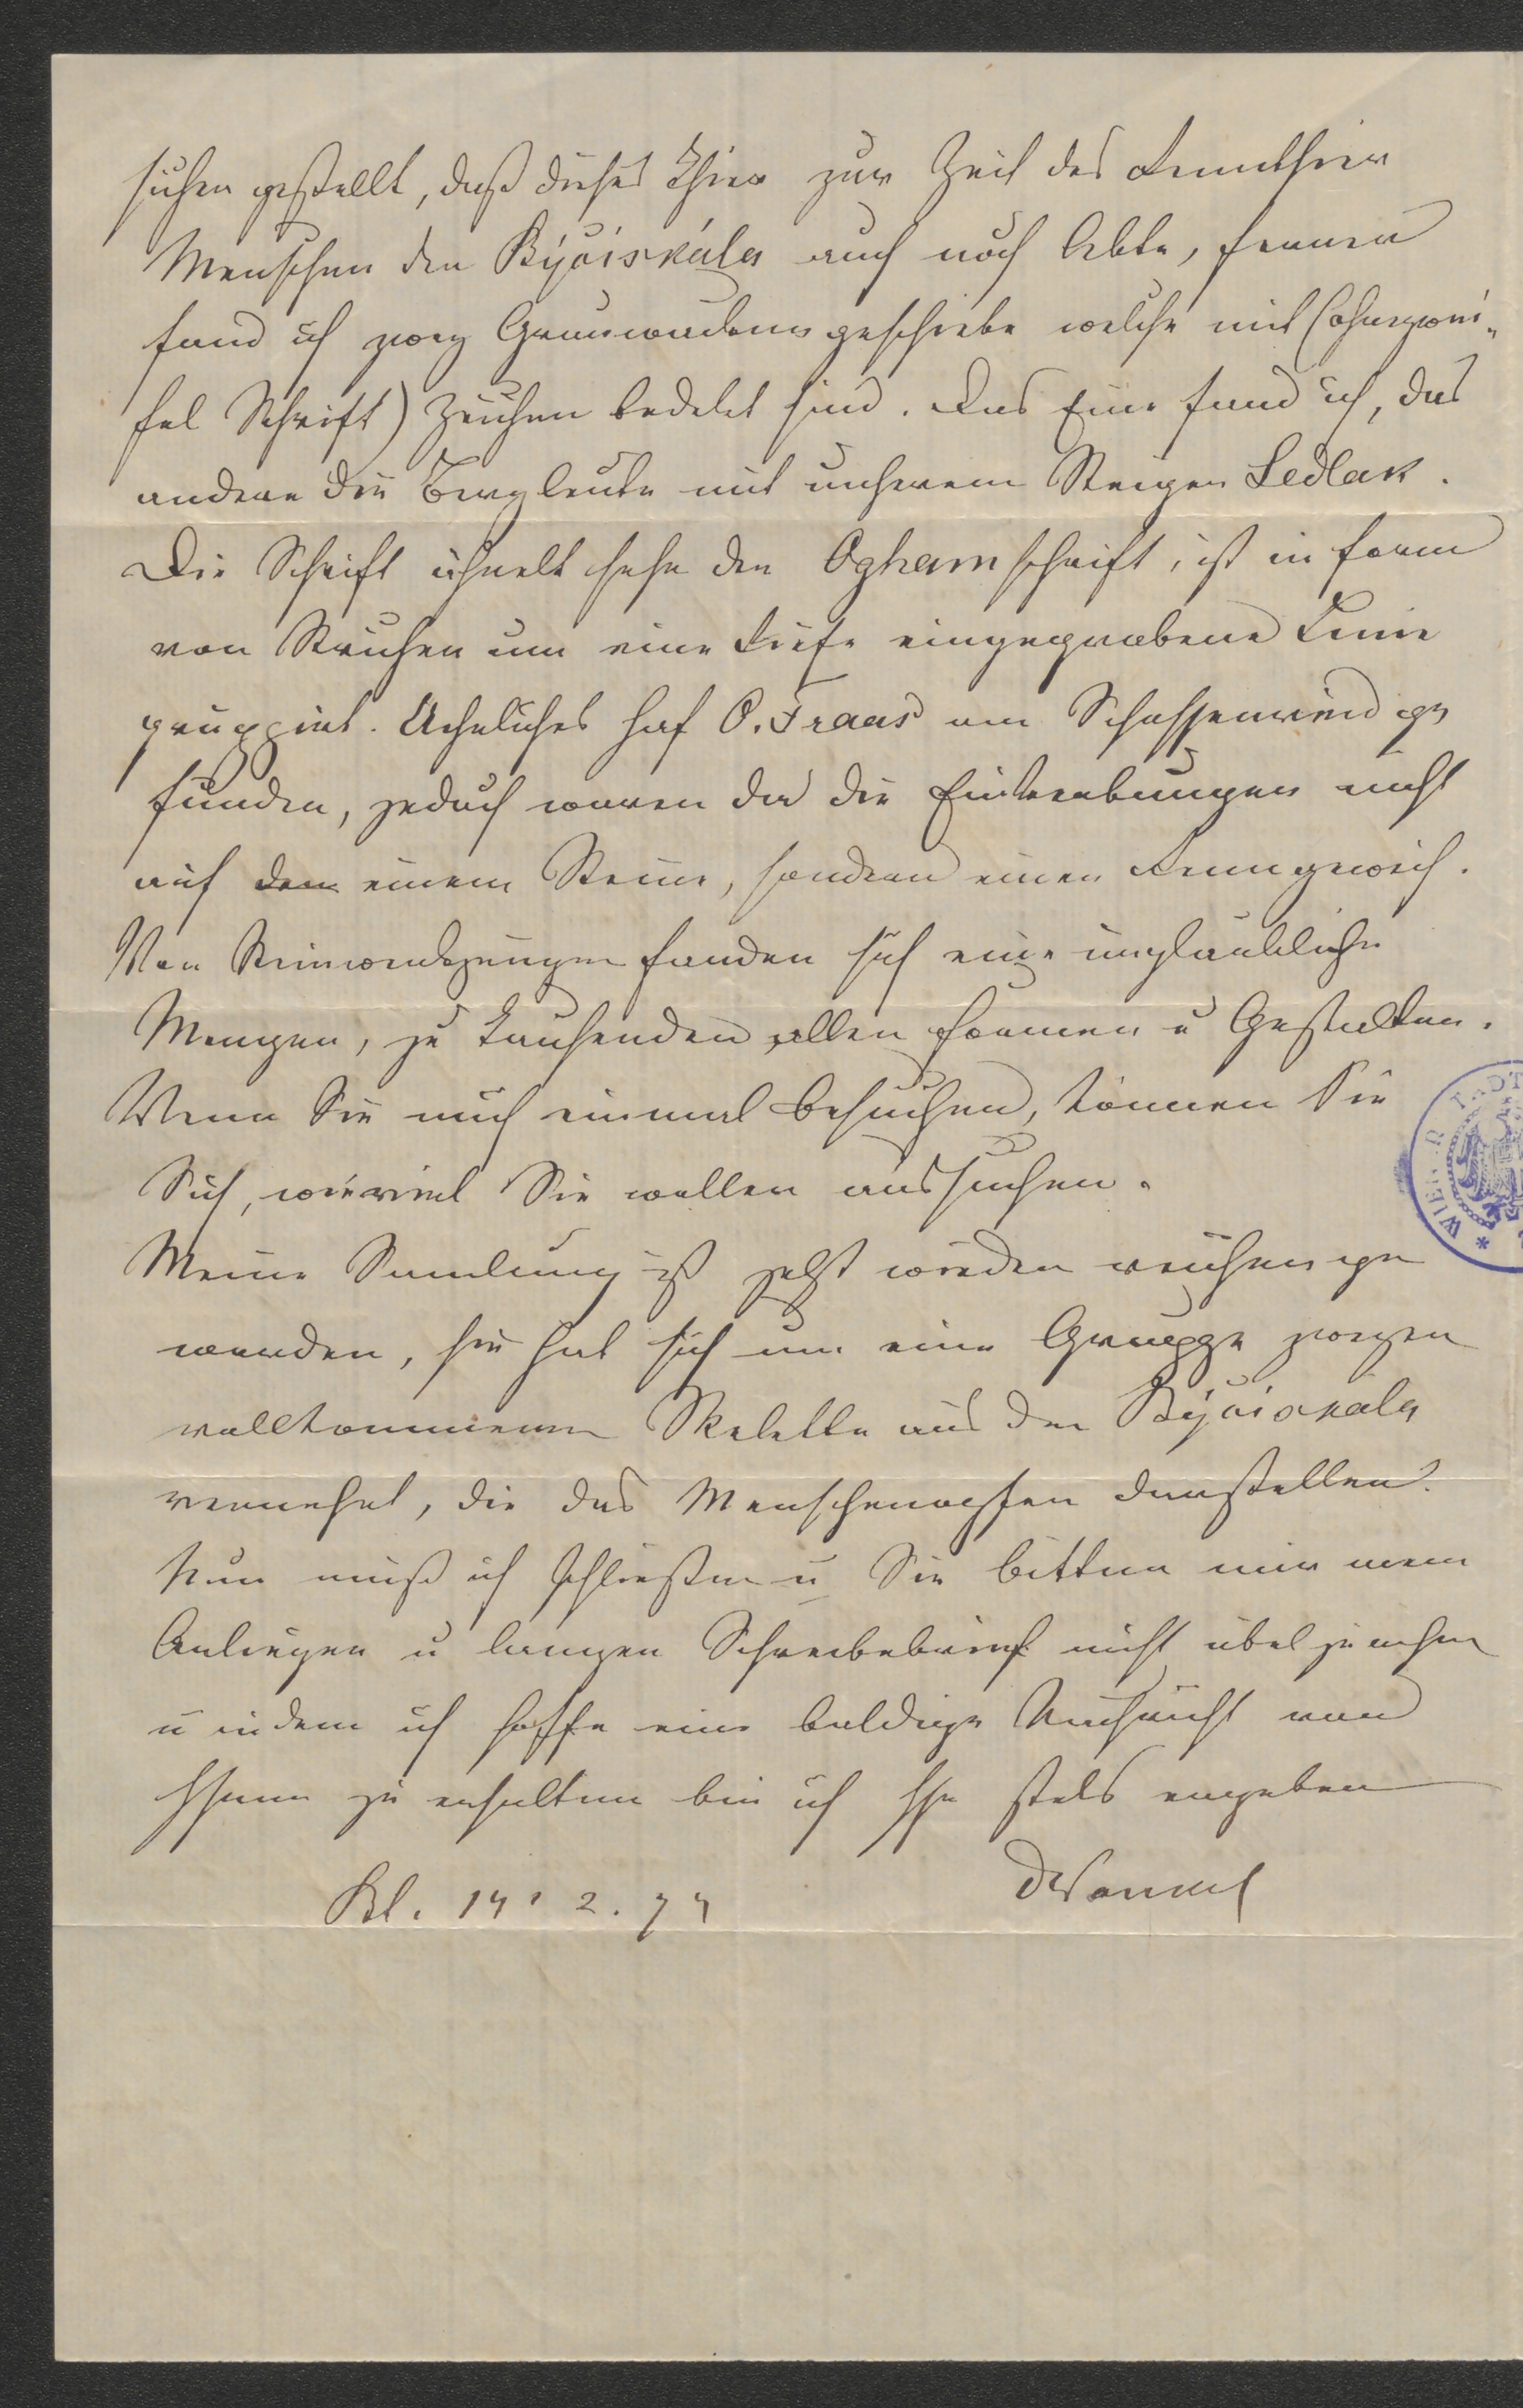 sicher gestellt, daß dieses Thier zur Zeit des Rennthier
Menschen der Býčiskála auch noch lebte, ferner
fand ich zwey Grauwackengeschiebe welche mit (ohnzwei-
fel Schrift) Zeichen bedekt sind. Das Eine fand ich, das
andere die Bergleute mit unserem Steiger Sedlak.
Die Schrift ähnelt sehr der Oghamschrift, ist in Form
von Strichen um eine tiefe eingegrabene Linie
gruppirt. Aehnliches hat O. Fraas am Schussenried ge
funden, jedoch waren da die Einkerbungen nicht
auf dem einem Steine, sondern einem Renngeweih.
Von Steinwerkzeugen fanden sich eine unglaubliche
Mengen, zu Tausenden allen Formen u Gestalten.
Wenn Sie mich einmal besuchen, können Sie
Sich, wieviel Sie wollen aussuchen.
Meine Samlung ist jetzt wieder reicher ge
worden, sie hat sich um eine Gruppe zweyer
vollkommener Skelette aus der Býčiskála
vermehrt, die das Menschenopfer darstellen.
Nun muß ich schließen u Sie bitten mir mein
Anliegen u langen Schreibebrief nicht übel zu nehmen
u indem ich hoffe eine baldige Nachricht von
Ihnen zu erhalten bin ich Ihr stets ergebener
DWankel
Bl. 14. 2. 74
WIENER STADT